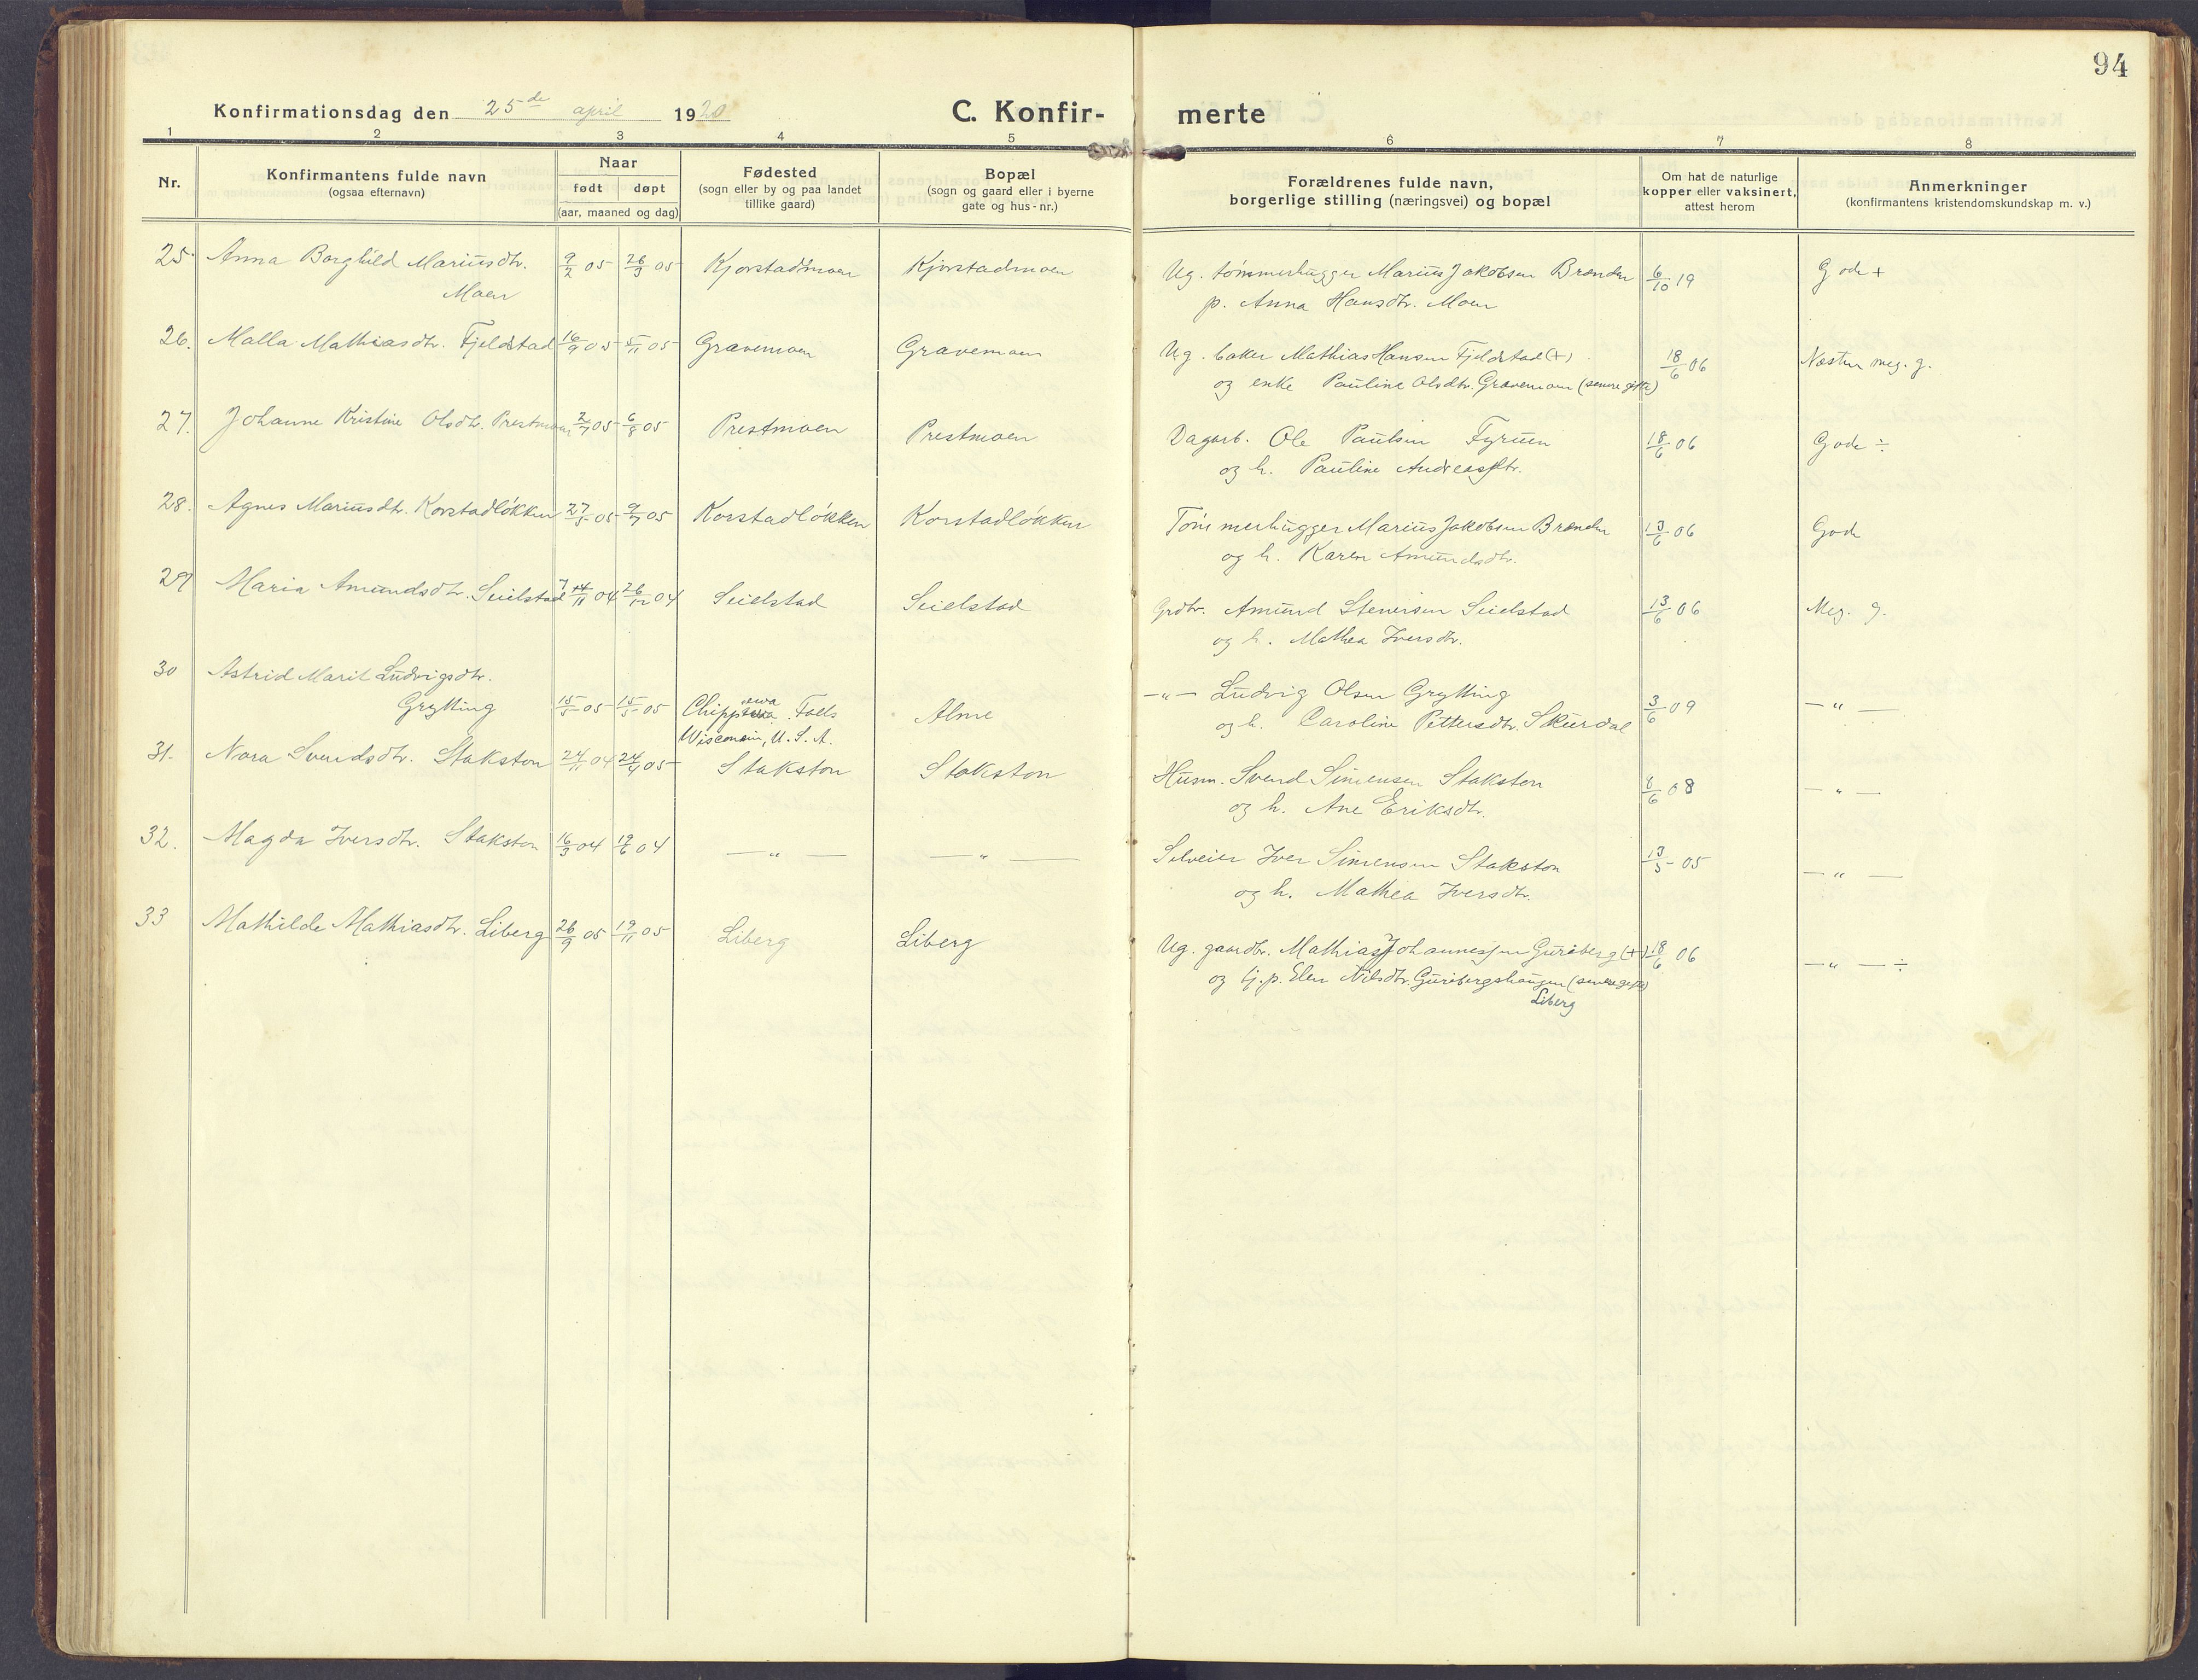 94
Konfirmationsdag den 25de april 1920 C. Konfirmerte
1 2 3 4 5 6 7 8
Nr.
Konfirmantens fulde navn
(ogsaa efternavn)
Naar
født døpt
(aar, maaned og dag)
Fødested
(sogn eller by og paa landet
tillike gaard)
Bopæl
(sogn og gaard eller i byerne
gate og hus-nr.)
Forældrenes fulde navn,
borgerlige stilling (næringsvei) og bopæl
Om hat de naturlige
kopper eller vaksinert,
attest herom
Anmerkninger
(konfirmantens kristendomskundskap m. v.)
25. Anna Borghild Mariusdtr. 9/2 05 26/3 05 Kjorstadmoen Kjorstadmoen Ug. tømmerhugger Marius Jakobsen Brenden 6/10 19 Gode +
Moen p. Anna Hansdtr. Moen
26. Malla Mathiasdtr. Fjeldstad 16/9 05 5/11 05 Gravemoen Gravemoen Ug. baker Mathias Hansen Fjeldstad (+) 18/6 06 Næsten meg. g.
og enke Pauline Olsdtr. Gravemoen (senere gifte)
27. Johanne Kristine Olsdtr. Prestmoen 2/7 05 6/8 05 Prestmoen Prestmoen Dagarb. Ole Paulsen Fyruen 18/6 06 Gode ÷
og h. Pauline Andreasdtr.
28. Agnes Mariusdtr. Korstadløkken 27/5 05 9/7 05 Korstadløkken Korstadløkken Tømmerhugger Marius Jakobsen Brenden 13/6 06 Gode
og h. Karen Amundsdtr.
29 Maria Amundsdtr. Seielstad 7/11 04 26/12 04 Seielstad Seielstad Grdbr. Amund Stenersen Seielstad 13/6 06 Meg. g.
og h. Mathea Iversdtr.
30 Astrid Marit Ludvigsdtr.
Grytting 15/5 05 15/5 05 Chippewa Falls Alme —„— Ludvig Olsen Grytting 3/6 09 —„—
Wisconsin, U. S. A. og h. Caroline Pettersdtr. Skurdal
31. Nora Svendsdtr. Stakston 24/11 04 24/4 05 Stakston Stakston Husm. Svend Simensen Stakston 8/6 08 —„—
og h. Ane Eriksdtr.
32. Magda Iversdtr. Stakston 16/3 04 19/6 04 —„— —„— Selveier Iver Simensen Stakston 13/5 05 —„—
og h. Mathea Iversdtr.
33 Mathilde Mathiasdtr. Liberg 26/9 05 19/11 05 Liberg Liberg Ug. gaardbr. Mathias Johannessen Guriberg (+) 18/6 06 —„— ÷
og tj.p. Elen Nilsdtr. Guribergshaugen (senere gifte)
Liberg